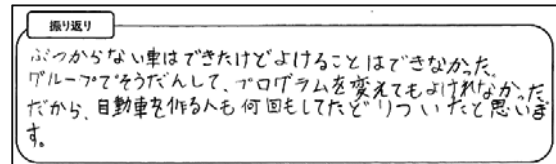 振り返り
ぶつからない車はできたけどよけることはできなかった。
グループでそうだんして、プログラムを変えてもよけれなかった。
だから、自動車を作る人も何回もしてたどりついたと思いま
す。